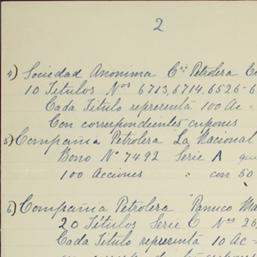 2
4) Sociedad Anonima Cia Petrolera
10 Titulos Nos 6713, 6714, 6526-6
Cada Titulo representa 100 Ac =
Con correspondientes cupones
5) Compania Petrolera "La Nacional
Bono No 7492 Serie A que
100 Acciones " con 50
6) Compania Petrolera "Panuco Ma
20 Titulos Serie C Nos 26
Cada Titulo representa 10 Ac =